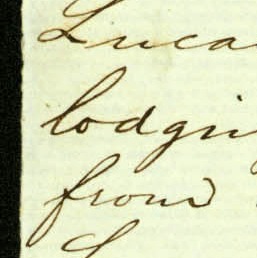 Luca
lodgin
from